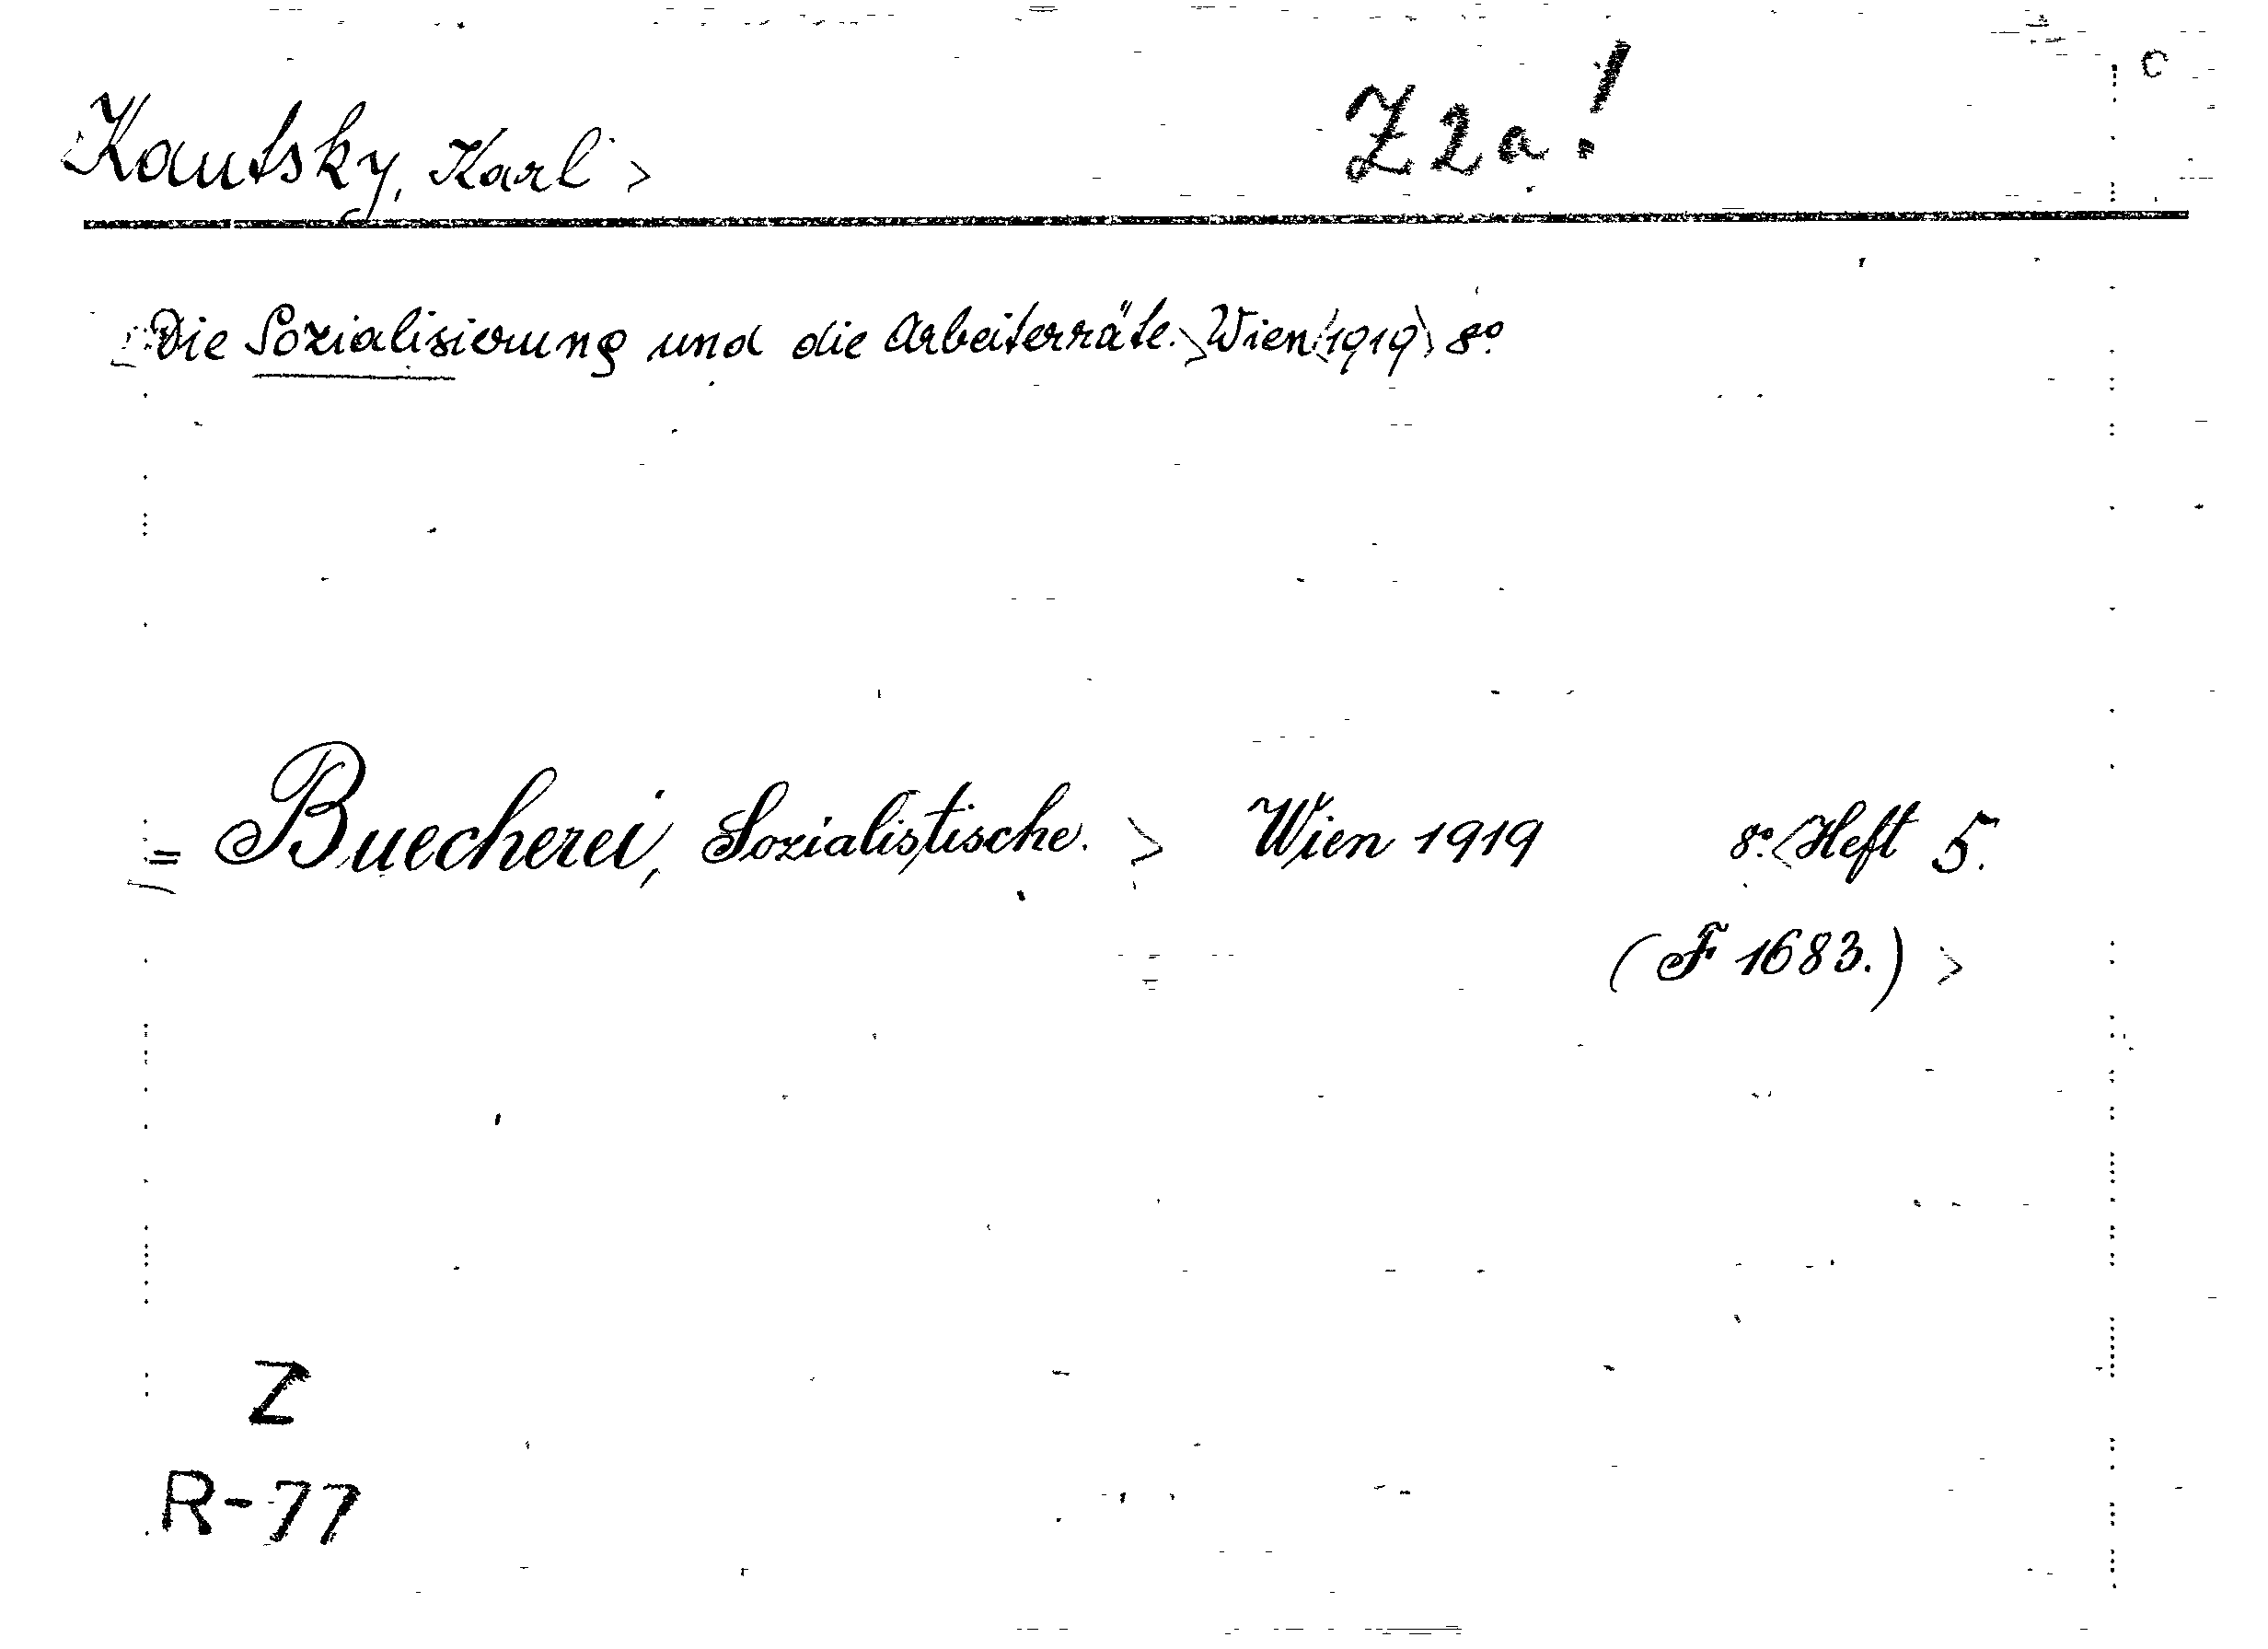 Kautsky, Karl > Z2a! c
Die Sozialisierung und die Arbeiterräte. > Wien <1919> 8º
= Buecherei, Sozialistische. > Wien 1919 8º. <Heft 5.
(F 1683.) >
Z
R-77